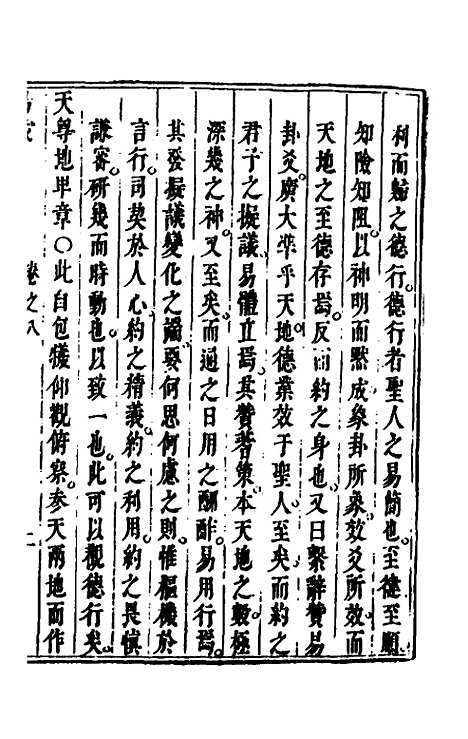 利而歸之德行德行者聖人之易簡也至德至順
知險知阻以神明而默成象卦所象效爻所效而
天地之至德存焉反而約之身也又曰繫辭贊易
卦爻廣大準乎天地德業效于聖人至矣而約之
君子之擬議易體立焉其贊蓍策本天地之數極
深幾之神又至矣而通之日用之酬酢易用行焉
其發擬議變化之謡要何思何慮之則惟樞機於
言行司契於人心約之精義約之利用約之畏慎
謙審研幾而時動也以致一也此可以觀德行矣
天尊地卑章○此自包犧仰觀俯察參天兩地而作
卷之八
二